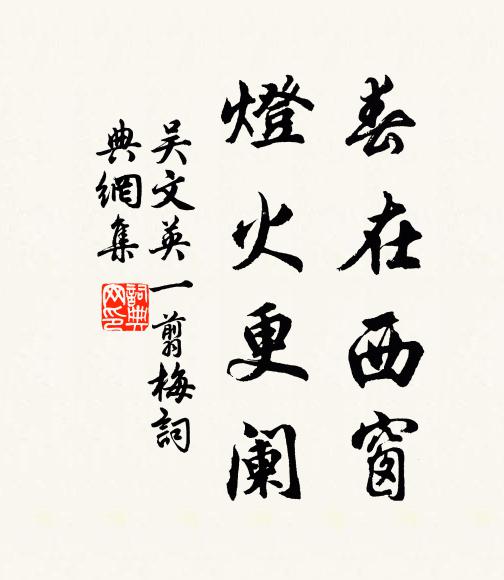 春在西窗
燈火更阑
吴文英一翦梅詞
典網集
詞典網印